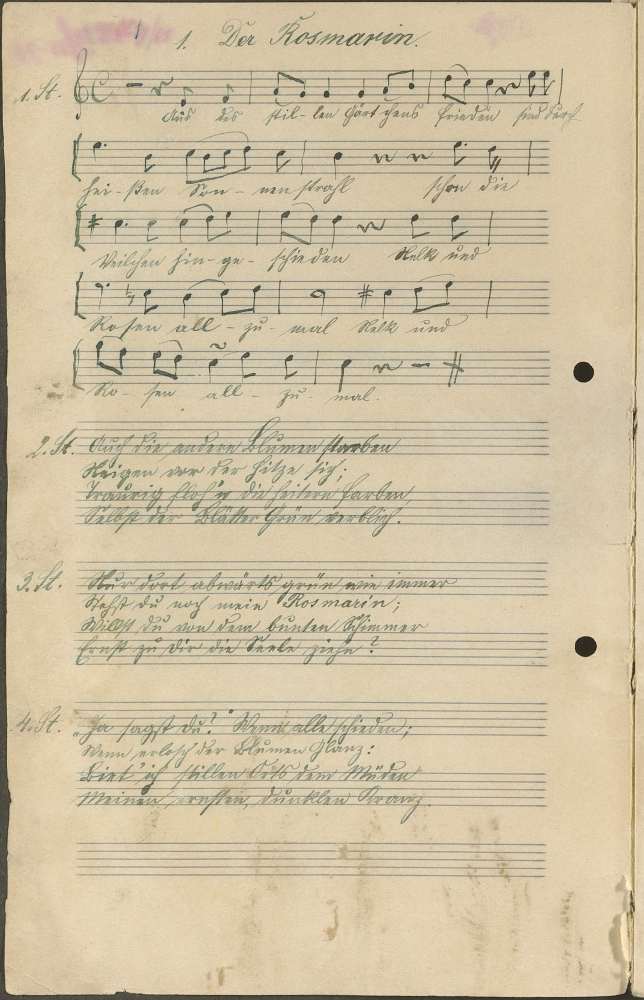 1. Der Rosmarin.
1. St. Aus des stil-len Gärtchens Frieden sind durch
hei-ßen Son-nenstrahl schon die
Veilchen hin-ge-schieden Nelk und
Rosen all-zu-mal Nelk und
Ro-sen all-zu-mal.
2. St. Auch die andern Blumen starben
Neigen vor der Hitze sich;
Traurig floh'n die heitern Farben,
Selbst der Blätter Grün verblich.
3. St. Nur dort abwärts grün wie immer
Stehst du noch mein Rosmarin;
Willst du von dem bunten Schimmer
Ernst zu dir die Seele ziehn?
4. St. „Ja sagst du?" Wenn alle schieden;
Wenn erlosch der Blumen Glanz:
Biet' ich stillen Orts dem Müden
Meinen ernsten, dunklen Kranz.